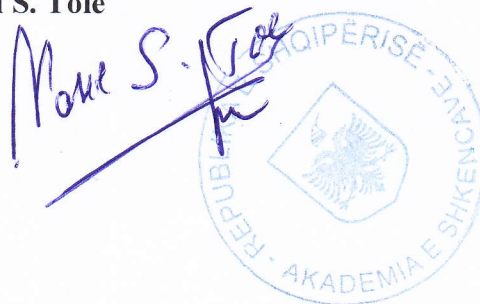 S. Tole
S. Tole
REPUBLIKA E SHQIPËRISË - AKADEMIA E SHKENCAVE -